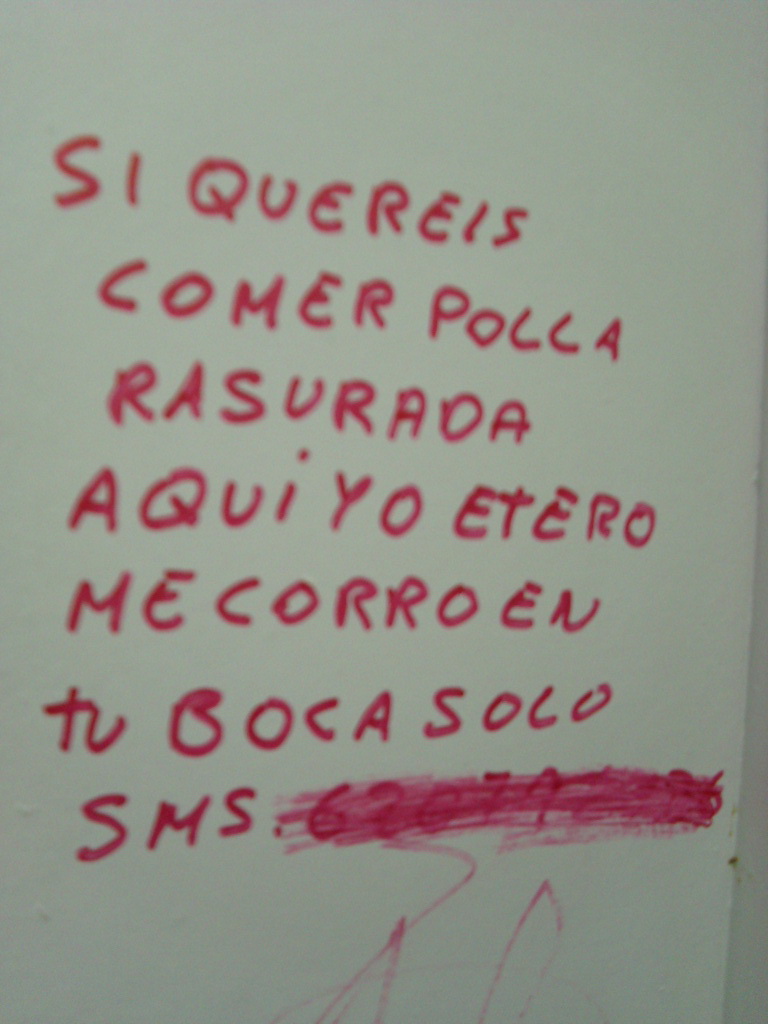 SI QUEREIS
COMER POLLA
RASURADA
AQUi YO ETERO
ME CORRO EN
tu BOCA SOLO
SMS.